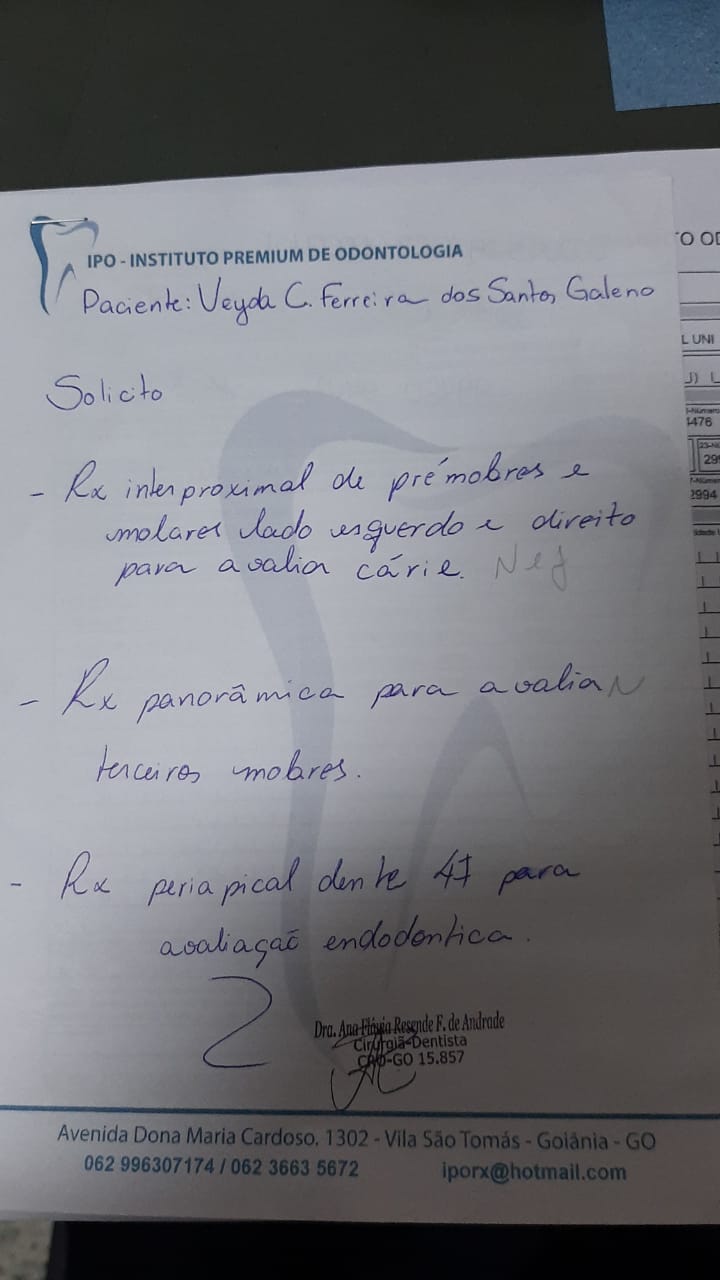 IPO - INSTITUTO PREMIUM DE ODONTOLOGIA
Paciente: Veyda C. Ferreira dos Santos Galeno
Solicito
- Rx interproximal de prémolares e
molares lado esquerdo e direito
para avalia cárie.
- Rx panorâmica para avalia
terceiros molares.
- Rx periapical dente 47 para
avaliação endodontica.
Dra. Ana Flávia Resende F. de Andrade
Cirurgiã-Dentista
CRO-GO 15.857
Avenida Dona Maria Cardoso, 1302 - Vila São Tomás - Goiânia - GO
062 996307174 / 062 3663 5672 iporx@hotmail.com
TO OD
L UNI
1476
299
2994